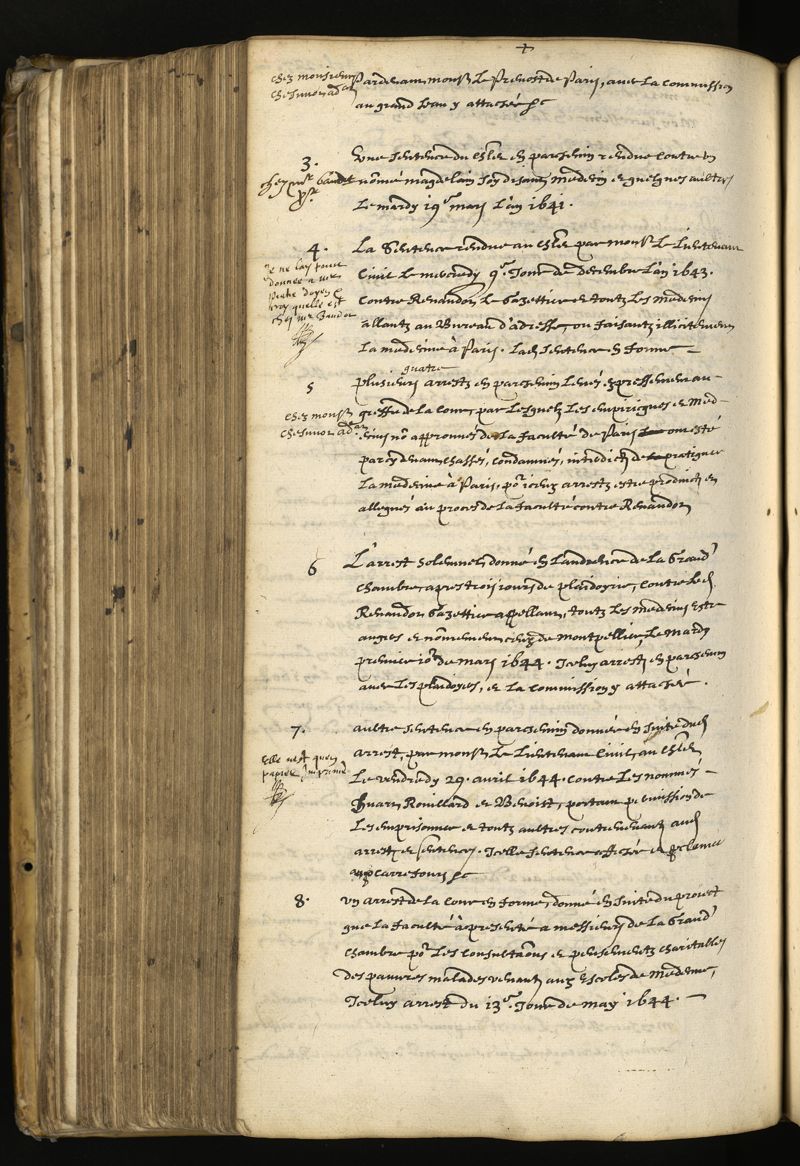 +
chez monsieur
chesmor ad^an
Pardevant mons^r Le Prevost de Paris, avec La commission
au grand sceau y attachée &c
3.
chez m^r baudot
Une Sentence du ch^let en parchemin rendue contre un
nōmé magdelain soy disant medecin et quelques aultres
Le mardy 19^e mars L'an 1641.
4.
Je ne lay point
donnee a m^re
Pietre doyen &
croy quelle est
chez m^r Baudot
La Sentence rendue au ch^let par mons^r Le Lieutenant
Civil Le mercredy 9^e Jour de decembre L'an 1643.
contre Renaudot Le Gazettier et toutz Les medecins
allantz au Bureau d'adresse, ou faisantz illicitement
La medecine à Paris. Lad. Sentence en forme —
5
chez mons^r
chesmor ad^an
quatre
plusieurs arrestz en parchemin Levés expressement au
greffe de la cour, par Lesquelz Les empiricques et med-
ecins nō approuvés de La faculté de Paris ont esté
parcydevant chassés, condamnés, interdictz de pratiquer
La medecine à Paris, po^r iceux arrestz estre produictz et
allegués au proces de La faculté contre Renaudot
6
L'arrest solemnel donné en L'audience de La Grand'
chambre, apres trois jours de plaidoyrie, contre led.
Renaudot Gazettier appellant, toutz Les medecins estr-
angers et nōmement ceux de montpellier, Le mardy
premier jo^r de mars 1644. Icelluy arrest en parchemin
avec Les plaidoyés, et La commission y attachée.
7.
Elle n'est qu'en
papier Imprimé
aultre sentence en parchemin donnée en suite dud.
arrest, par mons^r Le Lieutenant Civil, au ch^let
Le vendredy 29. avril 1644. contre Les nommés —
Huart, Rouillard et Benoist, portant permission de
Les emprisonner et toutz aultres contrevenantz aud.
arrest et sentences. Icelle sentence affichée et proclamée
aux carrefours &c
8.
un arrest de La cour en forme, donné en suite du project
que La faculté à presenté a messieurs de La Grand'
chambre po^r Les consultaōns et pensementz charitables
des pauvres malades venantz aux Escoles de medecine,
Icelluy arrest du 13^e. Jour de may 1644. —